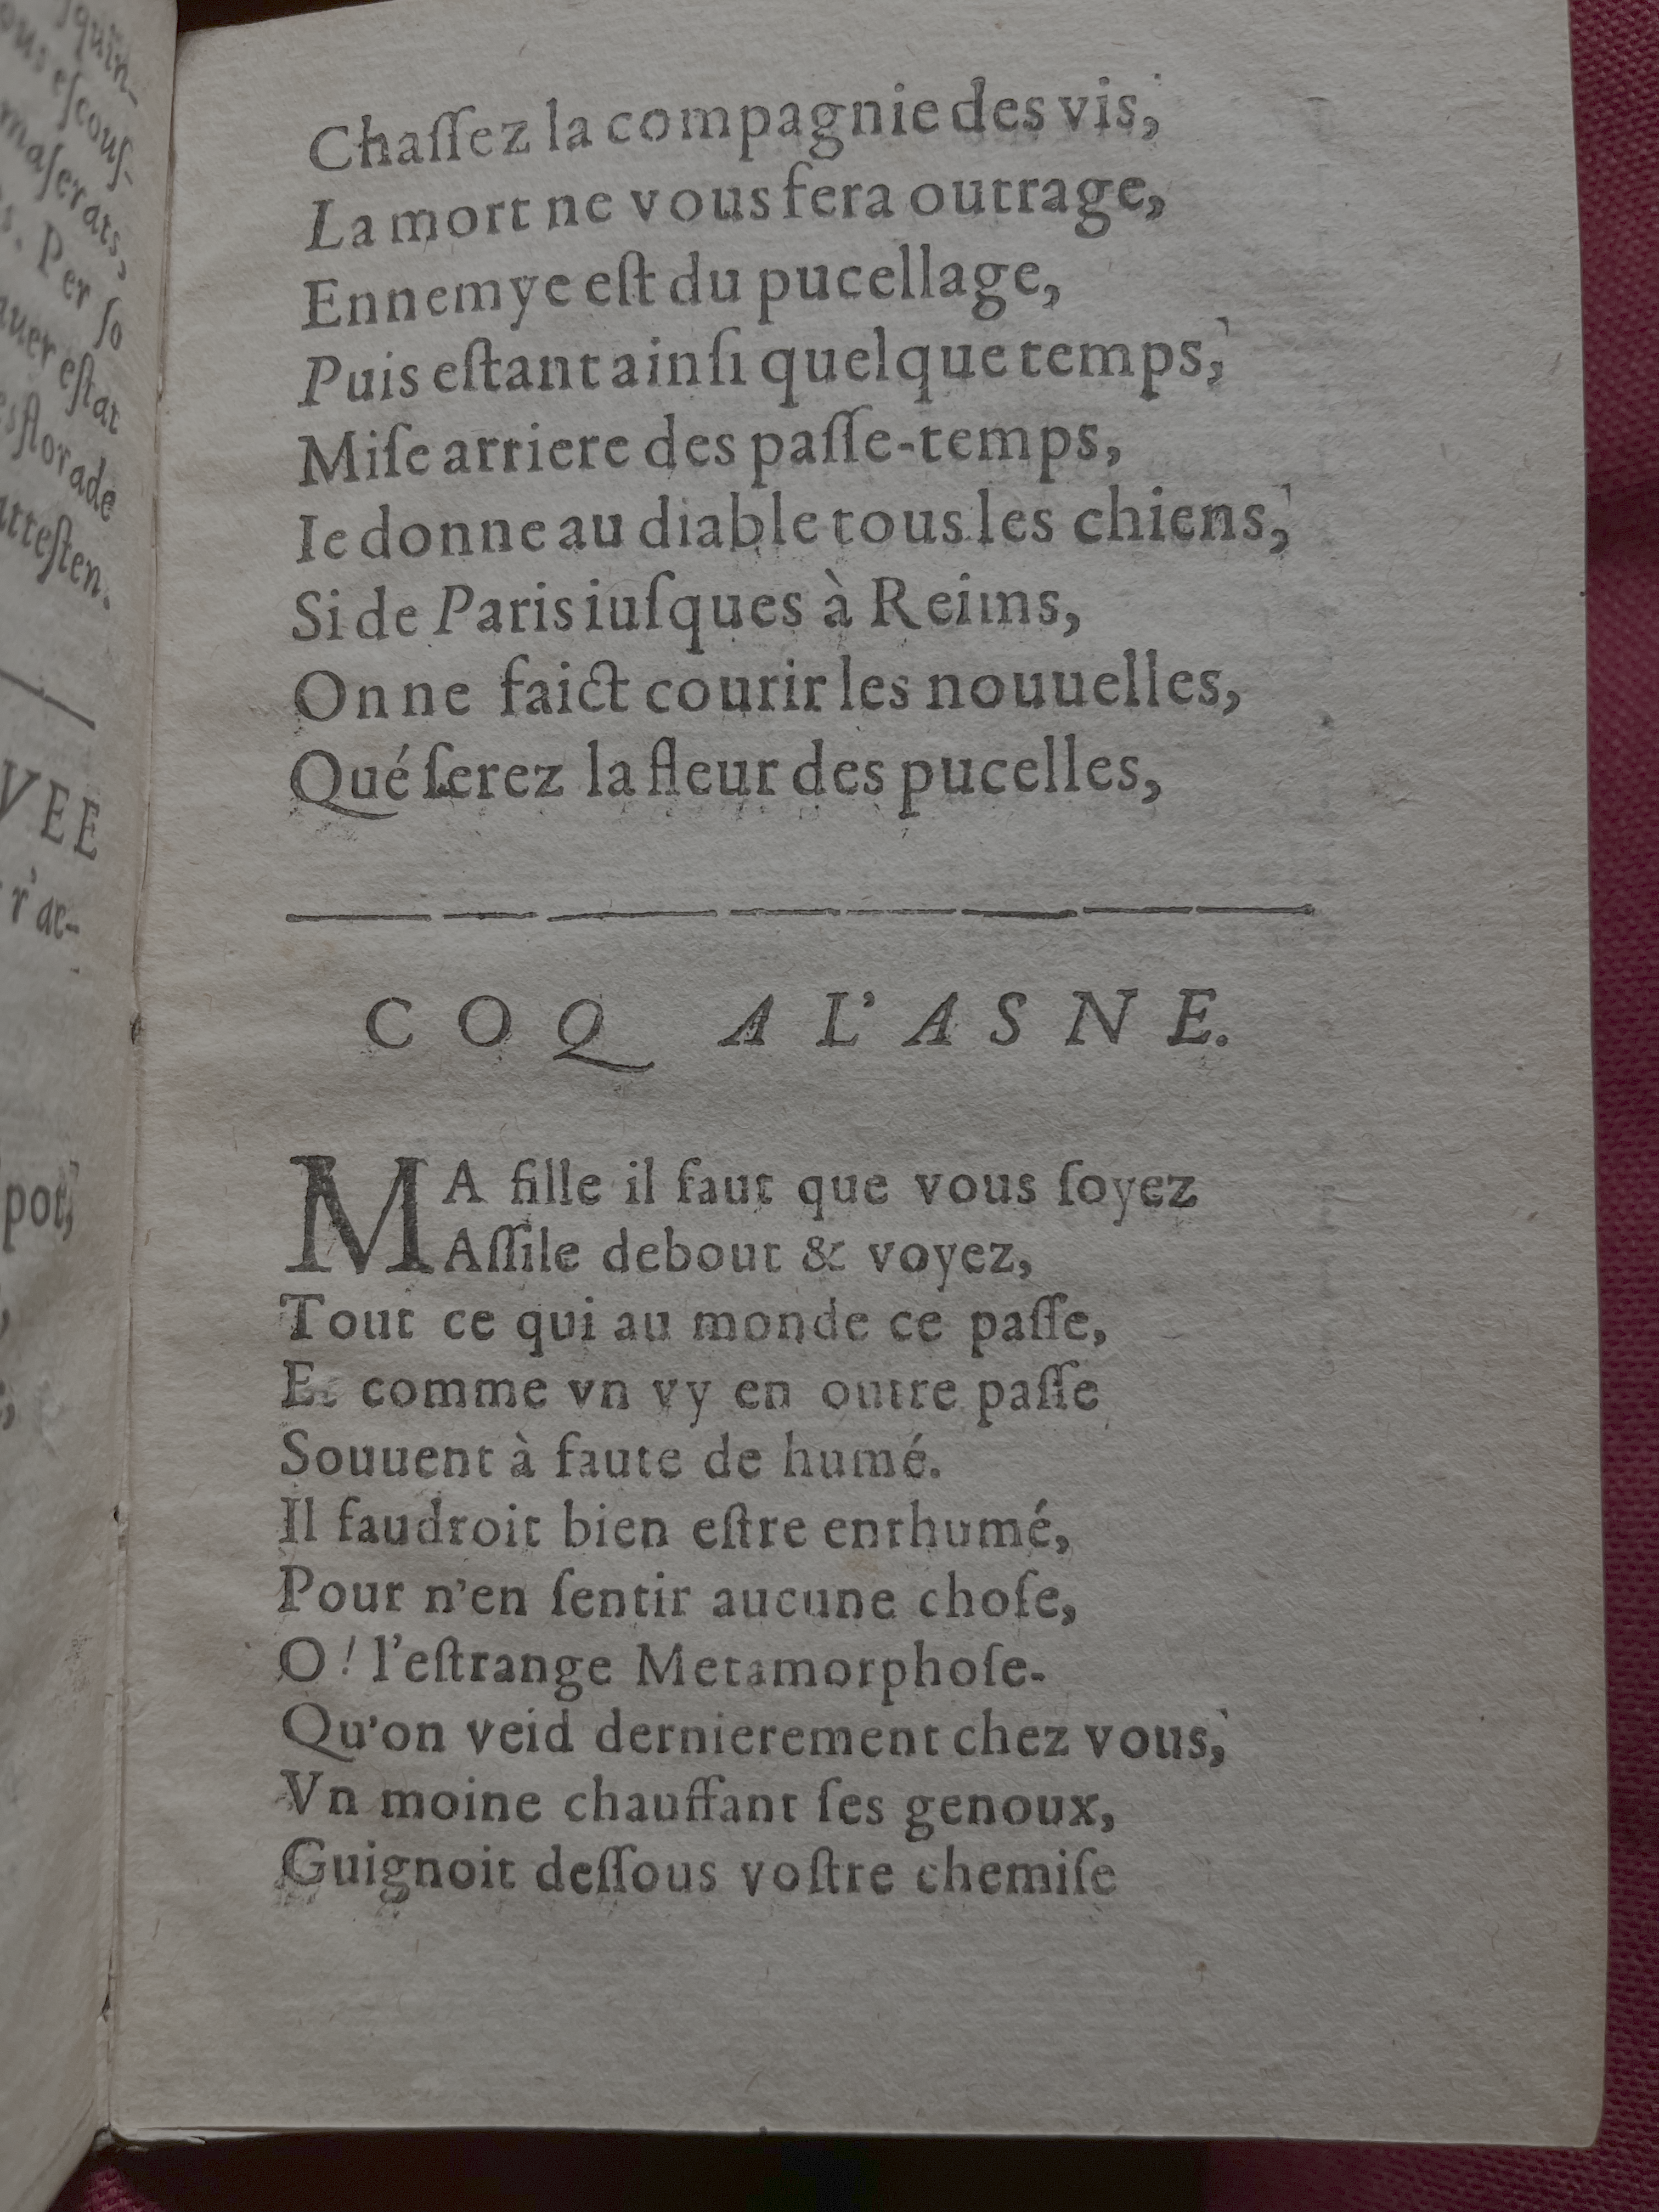 ſquin-
ous eſcouſ-
maſerats,
s. Per ſo
auer eſtat
esflorade
atteſten.
VEE
r'ac-
pot,
Chaſſez la compagnie des vis,
La mort ne vous fera outrage,
Ennemye eſt du pucellage,
Puis eſtant ainſi quelque temps,
Miſe arriere des paſſe-temps,
Ie donne au diable tous les chiens,
Si de Paris iuſques à Reims,
On ne faict courir les nouuelles,
Qué ſerez la fleur des pucelles,
COQ A L'ASNE.
MA fille il faut que vous ſoyez
Aſſiſe debout & voyez,
Tout ce qui au monde ce paſſe,
Et comme vn vy en outre paſſe
Souuent à faute de humé.
Il faudroit bien eſtre enrhumé,
Pour n'en ſentir aucune choſe,
O! l'eſtrange Metamorphoſe.
Qu'on veid dernierement chez vous,
Vn moine chauffant ſes genoux,
Guignoit deſſous voſtre chemiſe